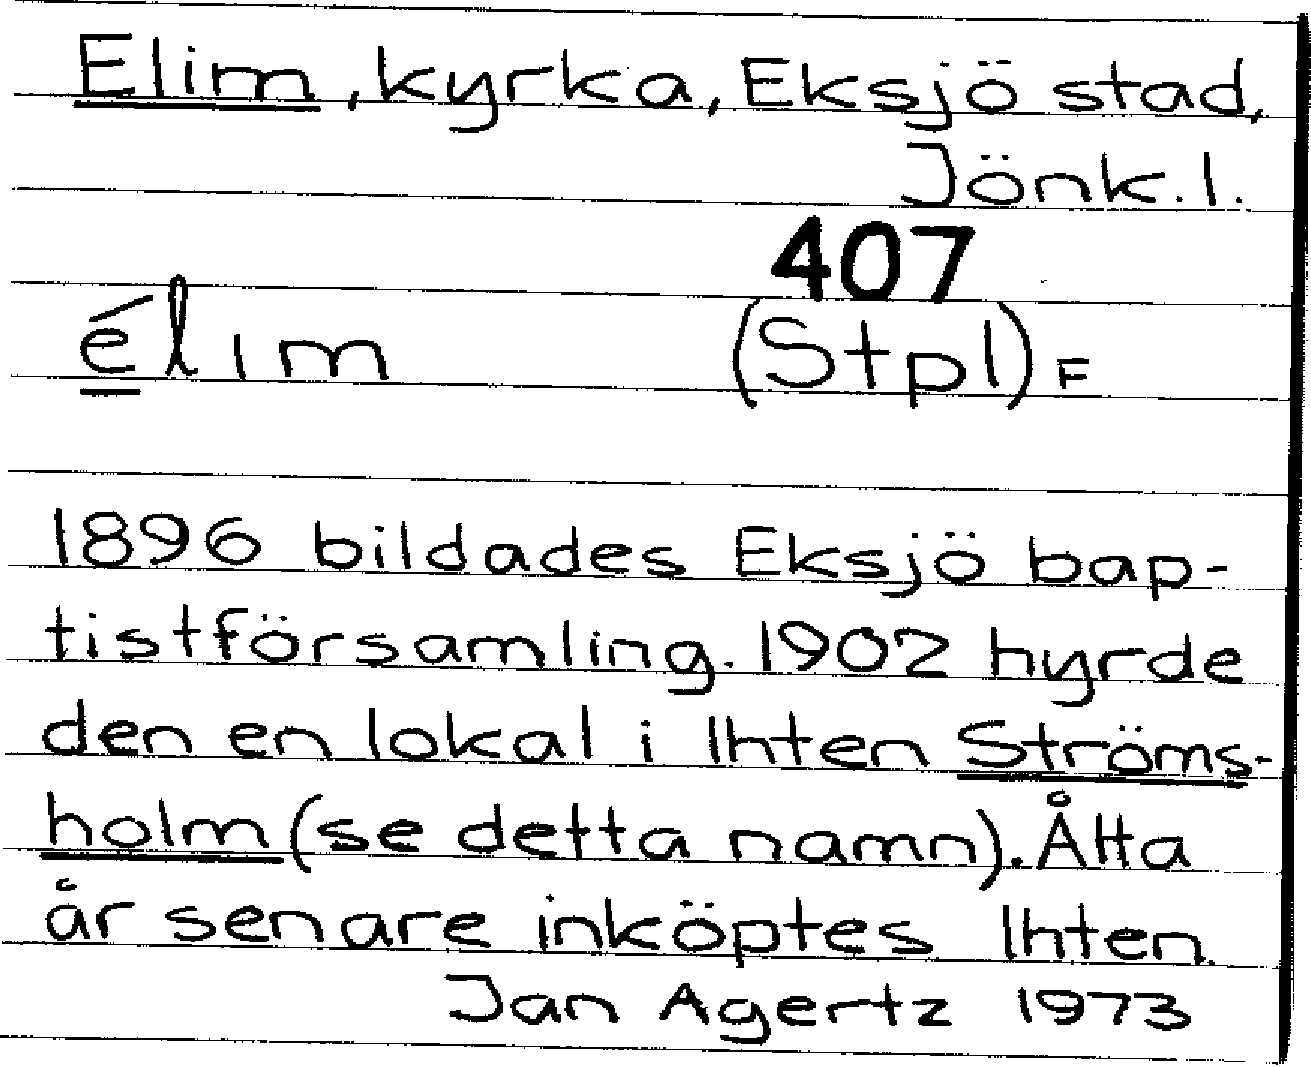 Elim, kyrka, Eksjö stad,
Jönk. l.
407
élım (Stpl) F
1896 bildades Eksjö bap-
tistförsamling. 1902 hyrde
den en lokal i lhten Ströms-
holm (se detta namn). Åtta
år senare inköptes lhten.
Jan Agertz 1973